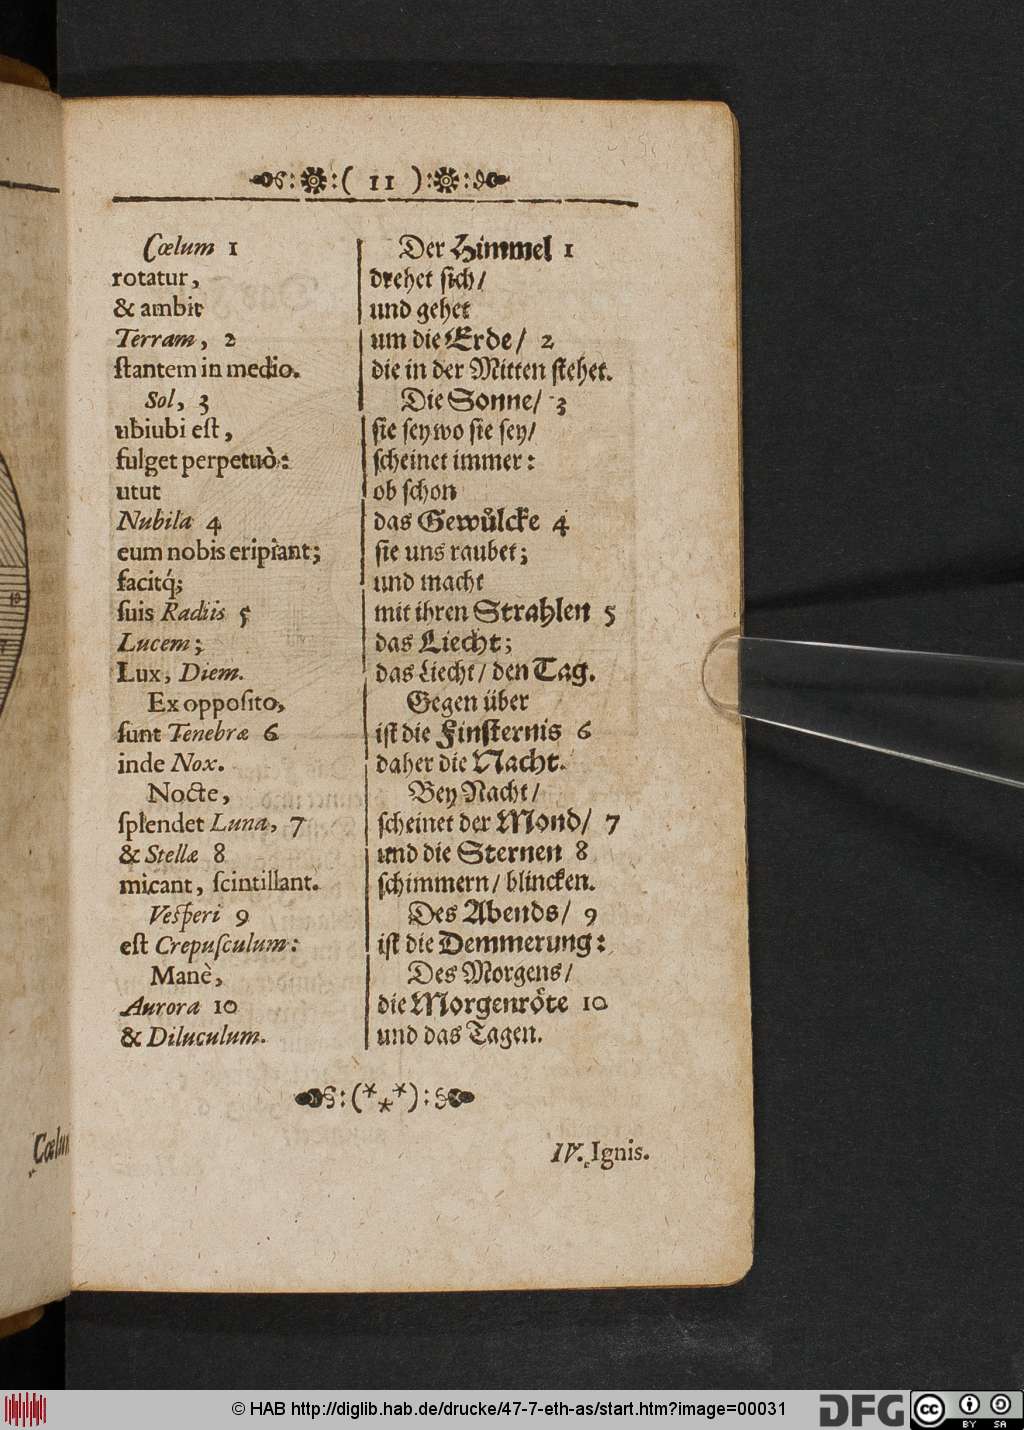 ( 11 )
Cœlum 1
rotatur,
& ambit
Terram, 2
ſtantem in medio.
Sol, 3
ubiubi eſt,
fulget perpetuò:
utut
Nubila 4
eum nobis eripiant;
facitq́;
ſuis Radiis 5
Lucem;
Lux, Diem.
Ex oppoſito,
ſunt Tenebræ 6
inde Nox.
Nocte,
ſplendet Luna, 7
& Stellæ 8
micant, ſcintillant.
Veſperi 9
eſt Crepuſculum:
Manè,
Aurora 10
& Diluculum.
Der Himmel 1
drehet ſich/
und gehet
um die Erde/ 2
die in der Mitten ſtehet.
Die Sonne/ 3
ſie ſey wo ſie ſey/
ſcheinet immer:
ob ſchon
das Gewuͤlcke 4
ſie uns raubet;
und macht
mit ihren Strahlen 5
das Liecht;
das Liecht/ den Tag.
Gegen über
iſt die Finſternis 6
daher die Nacht.
Bey Nacht/
ſcheinet der Mond/ 7
und die Sternen 8
ſchimmern/ blincken.
Des Abends/ 9
iſt die Demmerung:
Des Morgens/
die Morgenroͤte 10
und das Tagen.
IV. Ignis.
© HAB http://diglib.hab.de/drucke/47-7-eth-as/start.htm?image=00031
DFG
cc BY SA